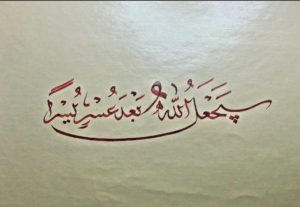 سَيَجْعَلُ اللَّهُ بَعْدَ عُسْرٍ يُسْرًا